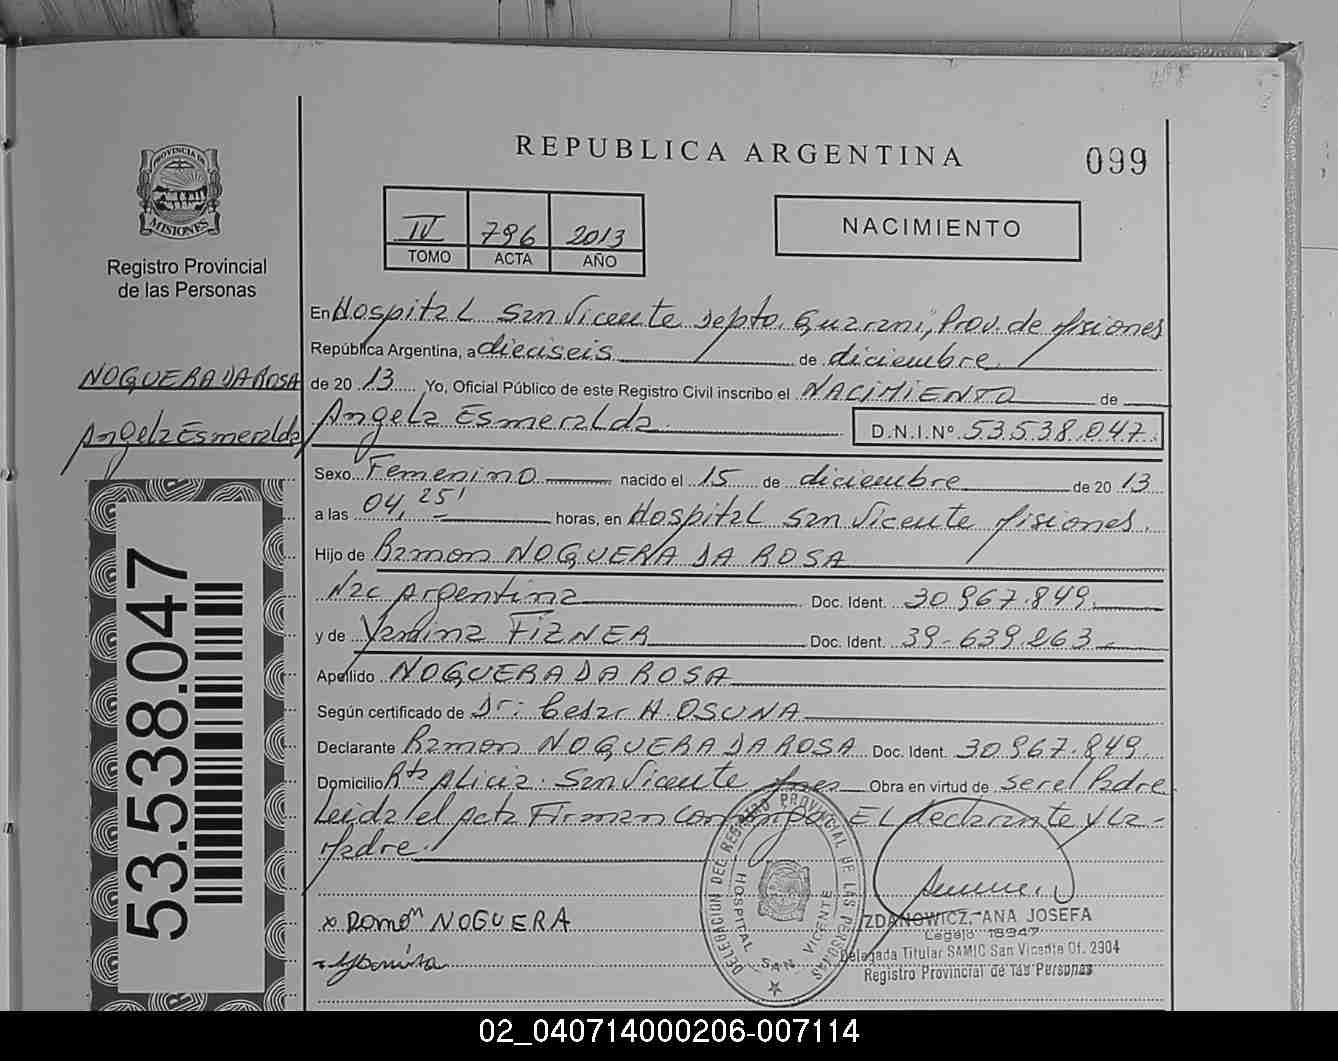 REPUBLICA ARGENTINA
099
PROVINCIA DE
MISIONES
Registro Provincial
de las Personas
IV 796 2013
TOMO ACTA AÑO
NACIMIENTO
En Hospital San Vicente Depto. Guarani, Prov. de Misiones
República Argentina, a dieciseis de diciembre
NOGUERA DA ROSA
Angela Esmeralda
de 20 13 Yo, Oficial Público de este Registro Civil inscribo el NACIMIENTO de
Angela Esmeralda D.N.I.Nº 53.538.047
Sexo Femenino nacido el 15 de diciembre de 20 13
a las 04,25' horas, en Hospital San Vicente Misiones.
Hijo de Ramon NOGUERA DA ROSA
Nac Argentina Doc. Ident. 30.967.849
y de Yanina FIZNER Doc. Ident. 39-639.263
Apellido NOGUERA DA ROSA
Según certificado de Dr: Cesar H. OSUNA
Declarante Ramon NOGUERA DA ROSA Doc. Ident. 30.967.849
Domicilio Rta Alicia. San Vicente Mnes Obra en virtud de ser el Padre
Leida el Acta Firman conmigo EL declarante y La-
Madre.
x Ramon NOGUERA
53.538.047
DELEGACION DEL REGISTRO PROVINCIAL DE LAS PERSONAS
HOSPITAL SAN VICENTE
ZDANOWICZ, ANA JOSEFA
Legajo 18947
Delegada Titular SAMIC San Vicente Of. 2904
Registro Provincial de las Personas
02_040714000206-007114